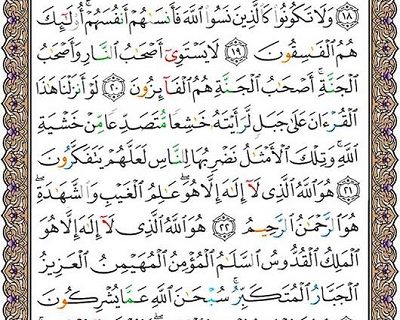 ﴿١٨﴾ وَلَا تَكُونُوا۟ كَٱلَّذِينَ نَسُوا۟ ٱللَّهَ فَأَنسَىٰهُمْ أَنفُسَهُمْ ۚ أُو۟لَـٰٓئِكَ
هُمُ ٱلْفَـٰسِقُونَ ﴿١٩﴾ لَا يَسْتَوِىٓ أَصْحَـٰبُ ٱلنَّارِ وَأَصْحَـٰبُ
ٱلْجَنَّةِ ۚ أَصْحَـٰبُ ٱلْجَنَّةِ هُمُ ٱلْفَآئِزُونَ ﴿٢٠﴾ لَوْ أَنزَلْنَا هَـٰذَا
ٱلْقُرْءَانَ عَلَىٰ جَبَلٍ لَّرَأَيْتَهُۥ خَـٰشِعًا مُّتَصَدِّعًا مِّنْ خَشْيَةِ
ٱللَّهِ ۚ وَتِلْكَ ٱلْأَمْثَـٰلُ نَضْرِبُهَا لِلنَّاسِ لَعَلَّهُمْ يَتَفَكَّرُونَ
﴿٢١﴾ هُوَ ٱللَّهُ ٱلَّذِى لَآ إِلَـٰهَ إِلَّا هُوَ ۖ عَـٰلِمُ ٱلْغَيْبِ وَٱلشَّهَـٰدَةِ ۖ
هُوَ ٱلرَّحْمَـٰنُ ٱلرَّحِيمُ ﴿٢٢﴾ هُوَ ٱللَّهُ ٱلَّذِى لَآ إِلَـٰهَ إِلَّا هُوَ
ٱلْمَلِكُ ٱلْقُدُّوسُ ٱلسَّلَـٰمُ ٱلْمُؤْمِنُ ٱلْمُهَيْمِنُ ٱلْعَزِيزُ
ٱلْجَبَّارُ ٱلْمُتَكَبِّرُ ۚ سُبْحَـٰنَ ٱللَّهِ عَمَّا يُشْرِكُونَ